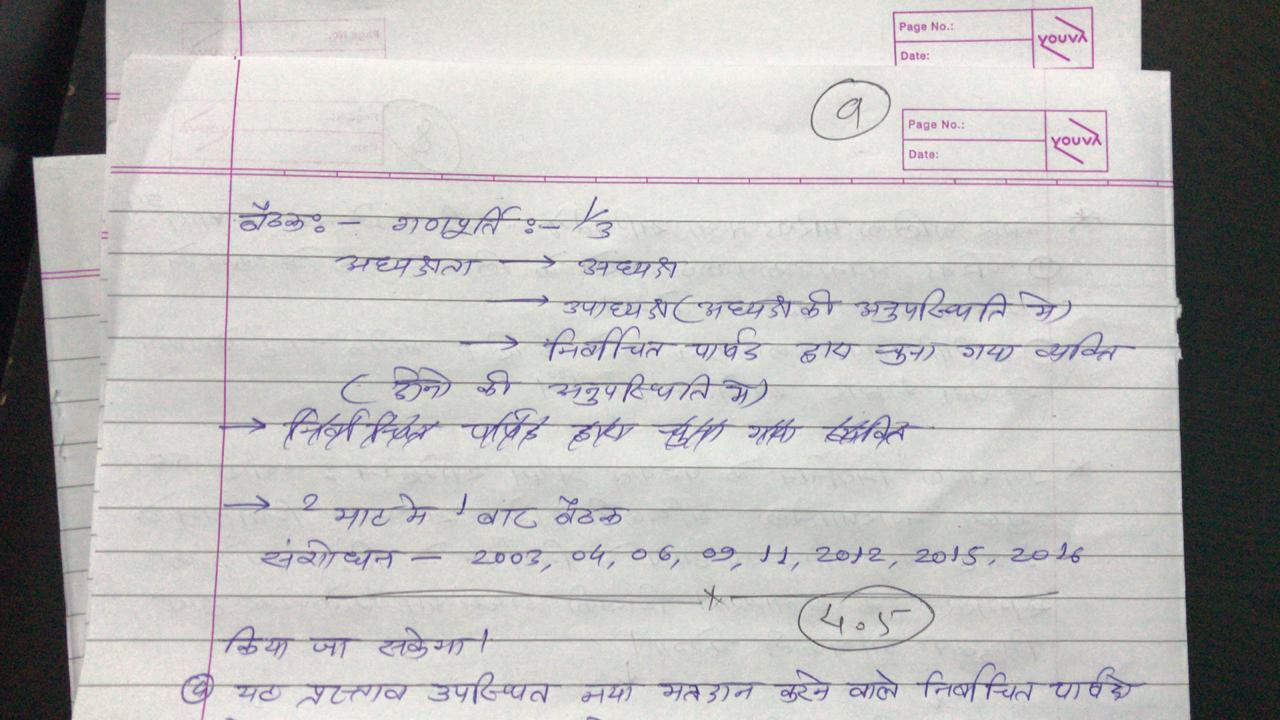 Page No.:
Date:
youva
9
Page No.:
Date:
youva
बैठकः - गणपूर्ति :- 1/3
अध्यक्षता → अध्यक्ष
→ उपाध्यक्ष (अध्यक्ष की अनुपस्थिति में)
→ निर्वाचित पार्षद द्वारा चुना गया व्यक्ति
(दोनो की अनुपस्थिति में)
→ निर्वाचित पार्षद द्वारा चुना गया व्यक्ति
→ 2 माह मे 1 बार बैठक
संशोधन - 2003, 04, 06, 09, 11, 2012, 2015, 2016
4.5
किया जा सकेगा।
यह प्रस्ताव उपस्थित तथा मतदान करने वाले निर्वाचित पार्षदो